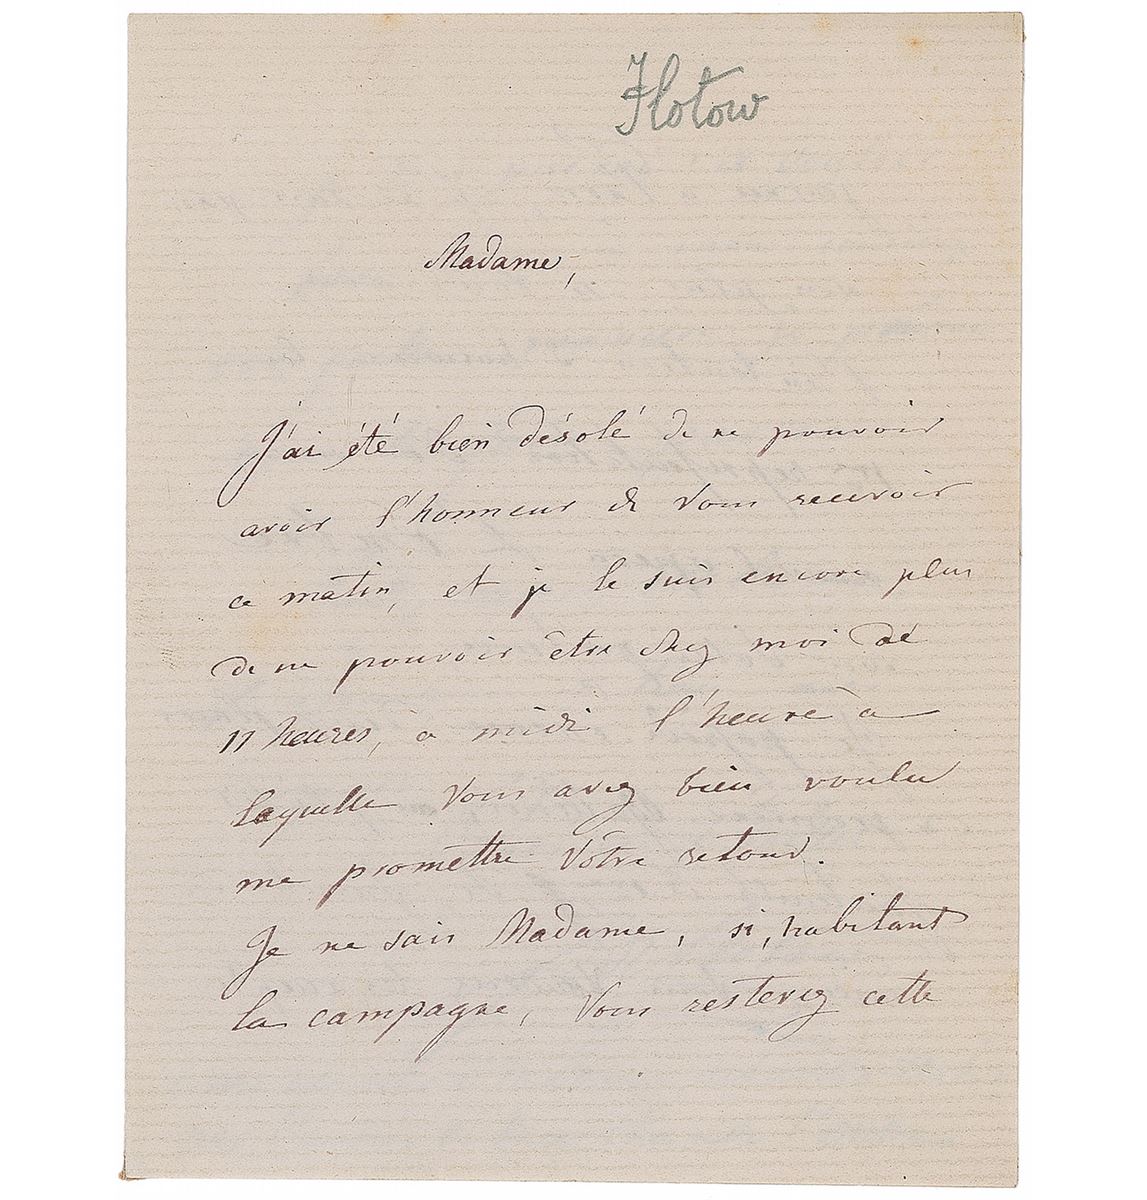 Flotow
Madame,
J'ai été bien désolé de ne pouvoir
avoir l'honneur de vous recevoir
ce matin, et je le suis encore plus
de ne pouvoir être chez moi de
11 heures, à midi l'heure à
laquelle vous avez bien voulu
me promettre votre retour.
Je ne sais Madame, si, habitant
la campagne, vous resterez cette